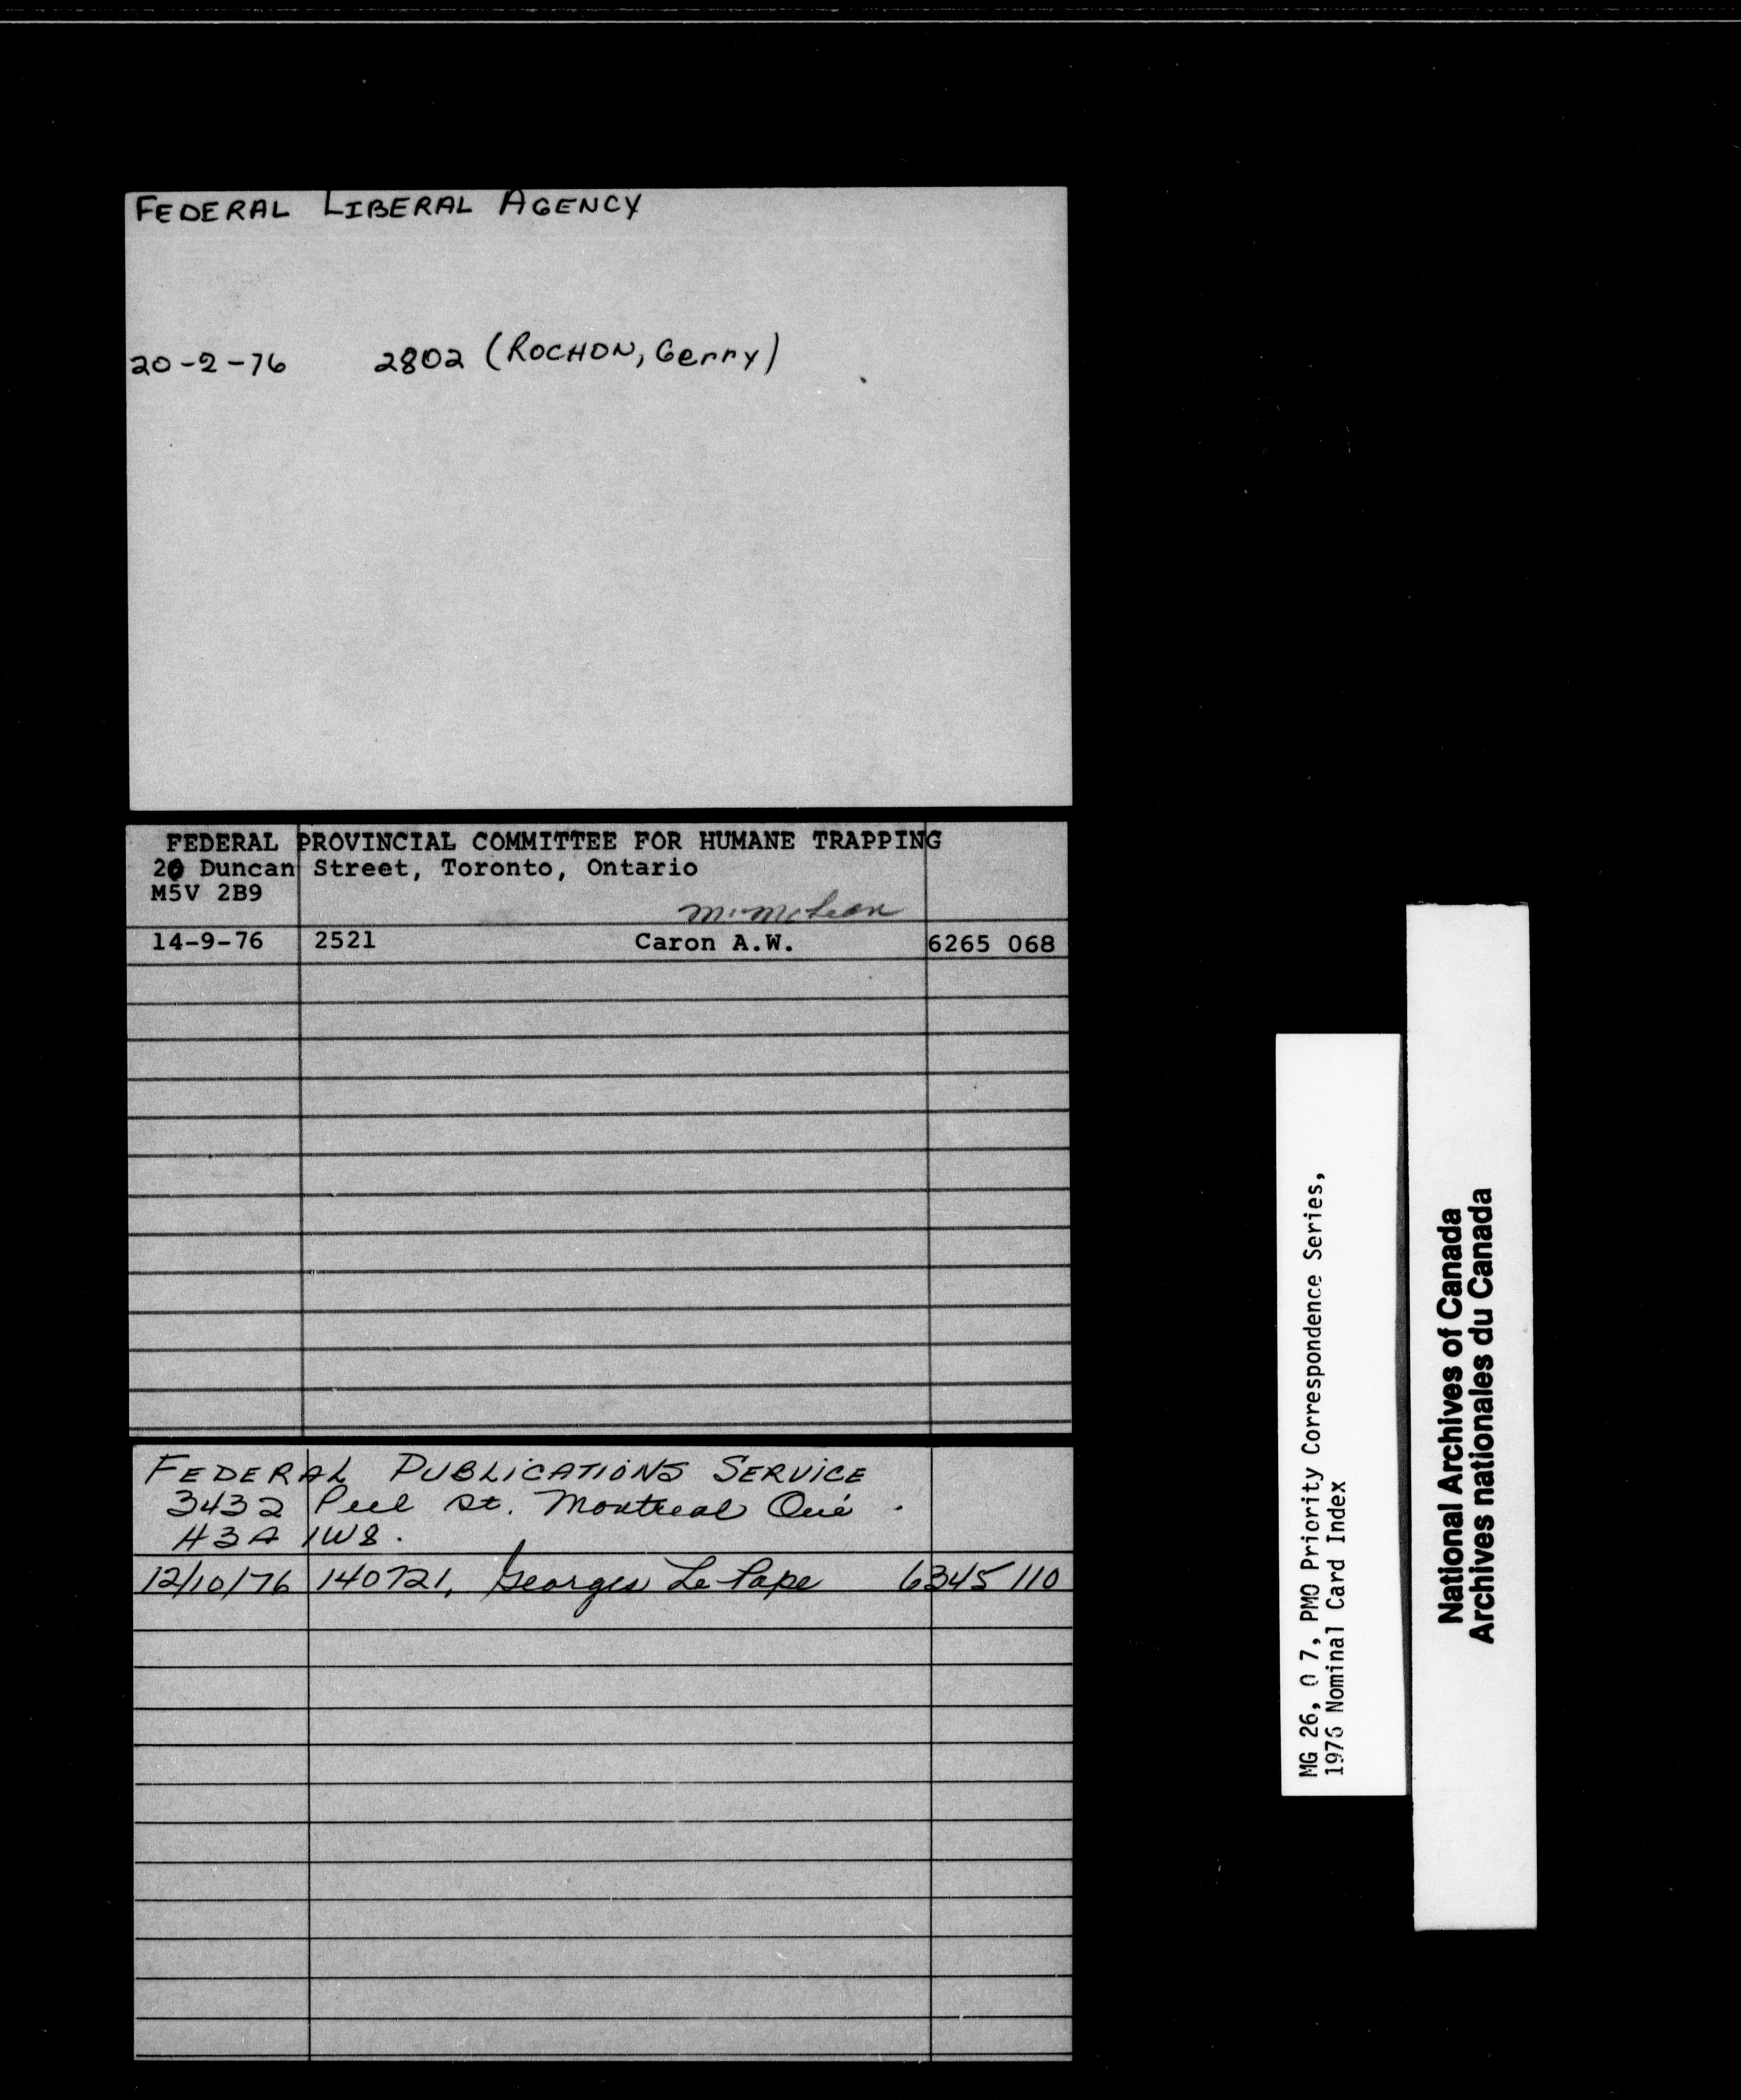 FEDERAL LIBERAL AGENCY
20-2-76 2802 (ROCHON, Gerry)
FEDERAL PROVINCIAL COMMITTEE FOR HUMANE TRAPPING
20 Duncan Street, Toronto, Ontario
M5V 2B9
M. McLean
14-9-76 2521 Caron A.W. 6265 068
FEDERAL PUBLICATIONS SERVICE
3432 Peel St. Montreal Qué.
H3A 1W8.
12/10/76 140721, Georges Le Pape 6345 110
MG 26, O 7, PMO Priority Correspondence Series,
1976 Nominal Card Index
National Archives of Canada
Archives nationales du Canada